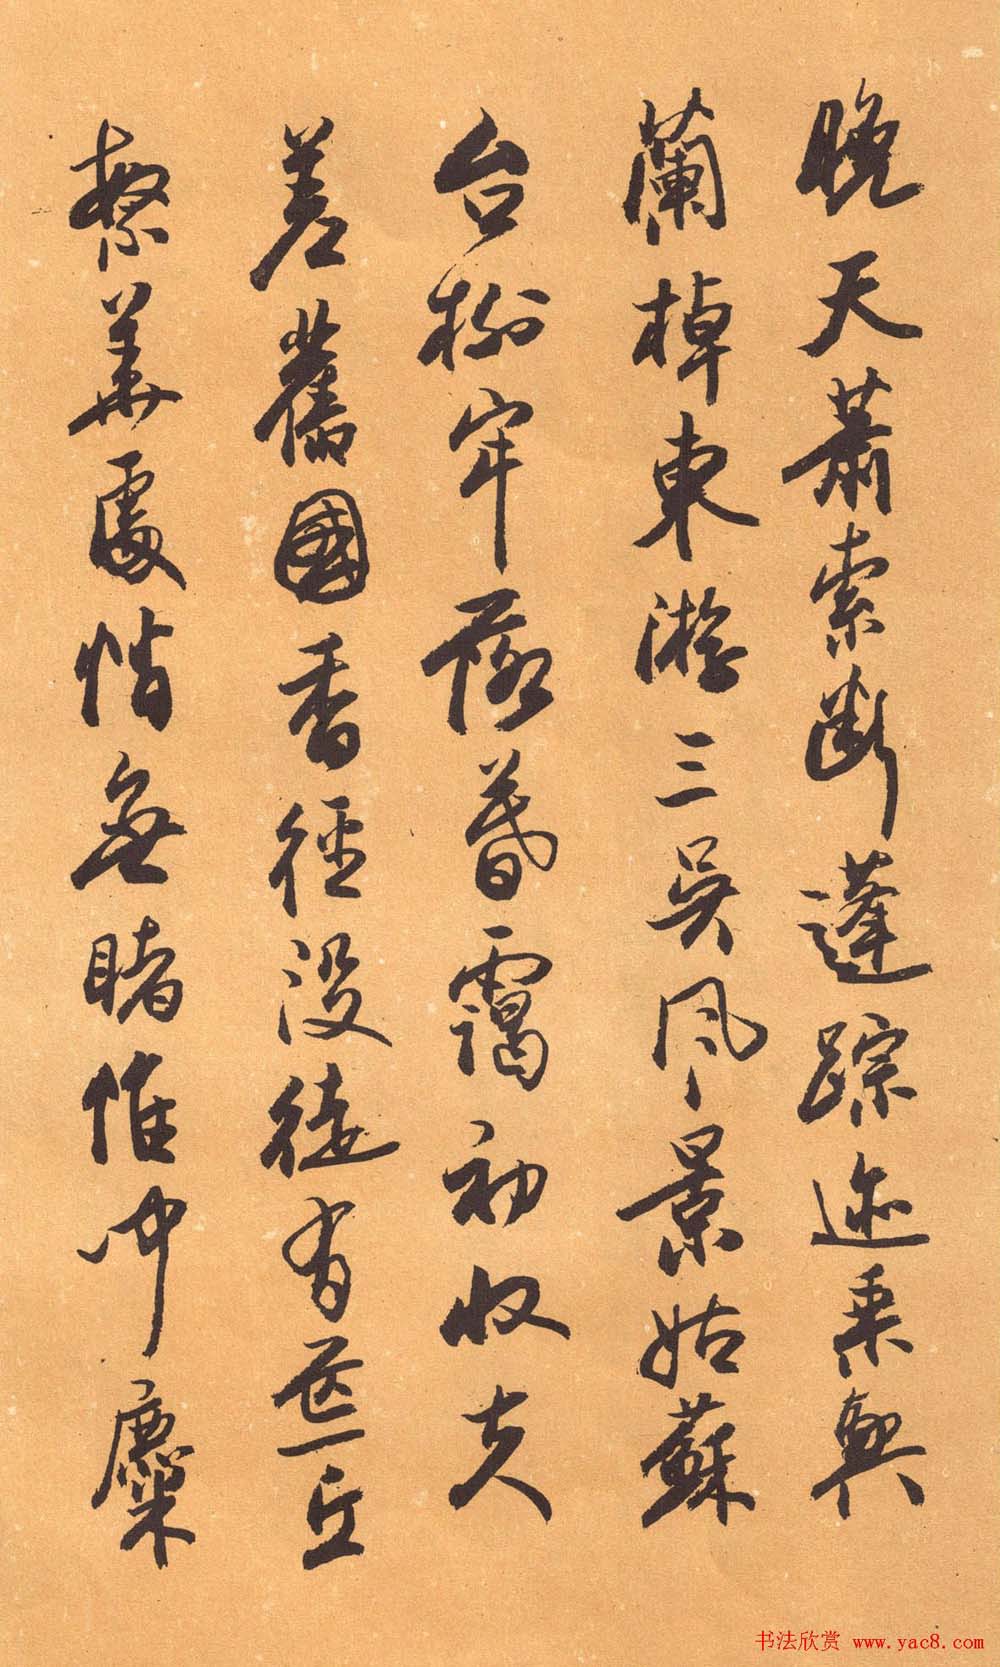 晚天蕭索斷蓬踪迹乘興
蘭棹東游三吳風景姑蘇
台榭牢落暮靄初收夫
差舊國香徑没徒有荒丘
繁華處悄無睹惟聞麋
书法欣赏 www.yac8.com